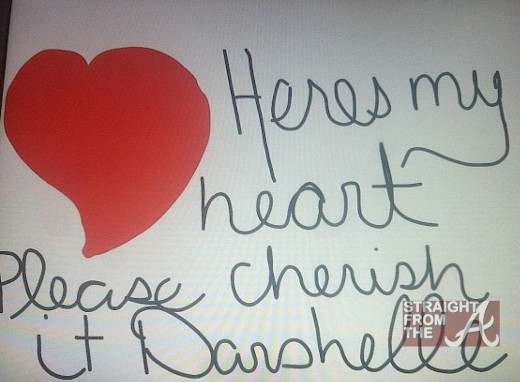 Heres my
heart
Please cherish
it Darshelle
STRAIGHT
FROM
THE A